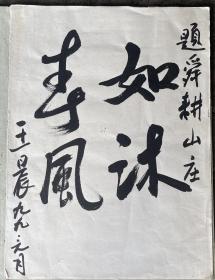 題舜耕山庄
如沐
春風
王晨九九.元月